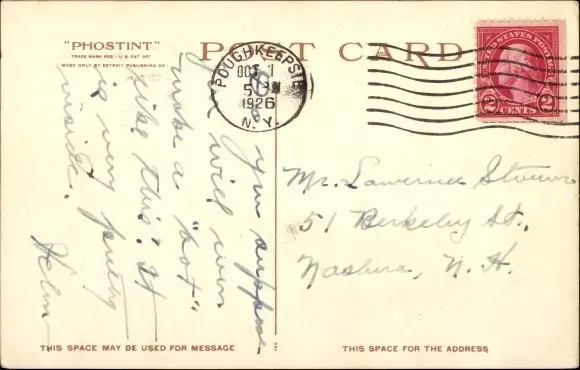 "PHOSTINT"
TRADE MARK REG. U.S. PAT OFF
MADE ONLY BY DETROIT PUBLISHING CO.
POST CARD
POUGHKEEPSIE
OCT 1
5 PM
1926
N. Y.
UNITED STATES POSTAGE
2 CENTS 2
Do you suppose
you will ever
make a "dot"
like this? It
is very pretty
inside.
Helen
Mr. Lawrence
51 Berkeley St.,
Nashua, N. H.
THIS SPACE MAY BE USED FOR MESSAGE
THIS SPACE FOR THE ADDRESS